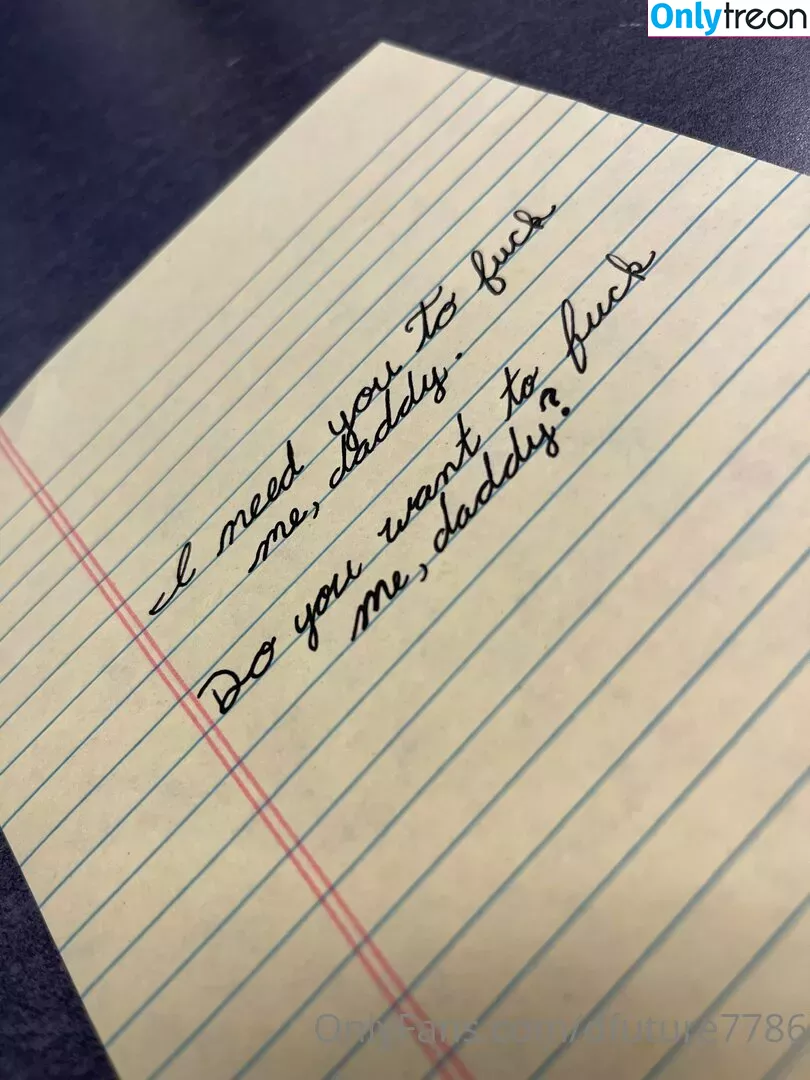 Onlytreon
I need you to fuck
me, daddy.
Do you want to fuck
me, daddy?
OnlyFans.com/dfuture7786